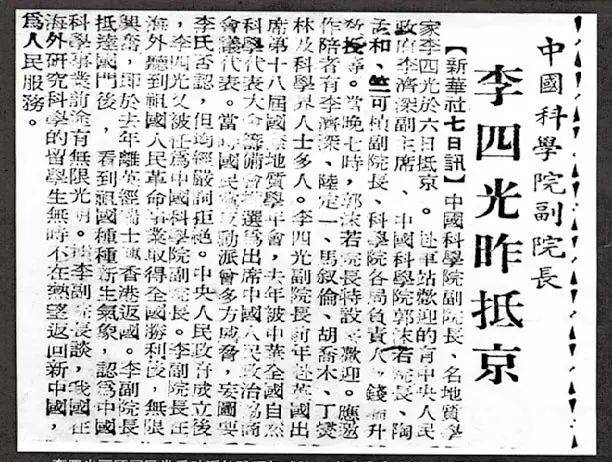 中國科學院副院長
李四光昨抵京
【新華社七日訊】中國科學院副院長、名地質學
家李四光於六日抵京。赴車站歡迎的有中央人民
政府李濟深副主席、中國科學院郭沫若院長、陶
孟和、竺可楨副院長、科學院各局負責人、錢 升
教授等。當晚七時，郭沫若院長特設 歡迎。應邀
作陪者有李濟深、陸定一、馬叙倫、胡喬木、丁燮
林及科學界人士多人。李四光副院長前年赴英國出
席第十八屆國際地質學年會，去年被中華全國自然
科學代表大會籌備會 選爲出席中國人民政治協商
會議代表。當時國民黨反動派曾多方威脅，妄圖要
李氏否認，但均經嚴詞拒絕。中央人民政府成立後
，李四光又被任爲中國科學院副院長。李副院長在
海外聽到祖國人民革命事業取得全國勝利後，無限
興奮，即於去年離英經瑞士 香港返國。李副院長
抵達國門後，看到祖國種種新生氣象，認爲中國
科學事業前途有無限光明。據李副院長談，我國在
海外研究科學的留學生無時不在熱望返回新中國，
爲人民服務。